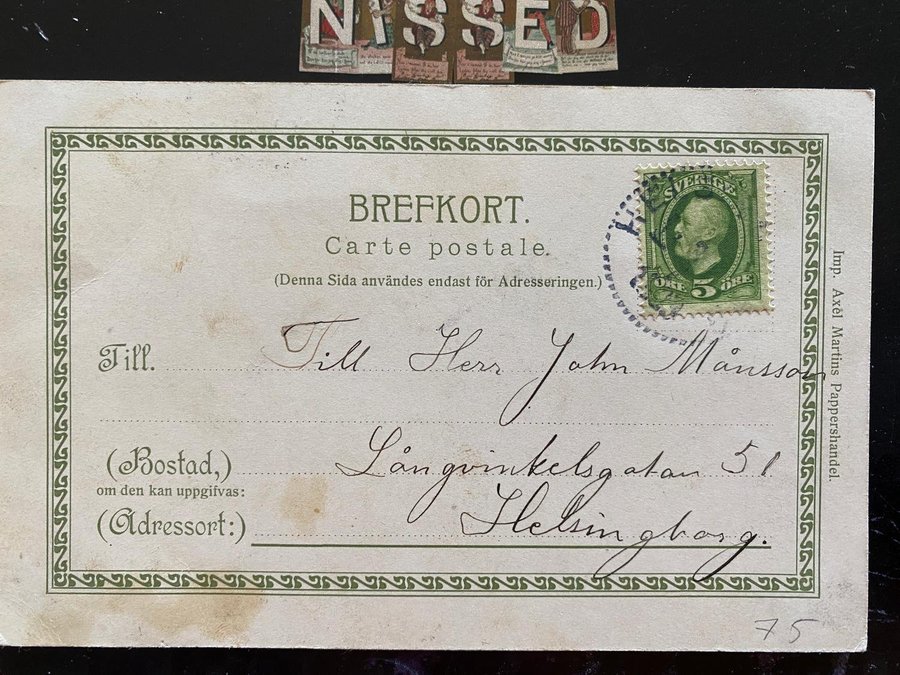 NISSED
BREFKORT.
Carte postale.
(Denna Sida användes endast för Adresseringen.)
SVERIGE
ÖRE 5 ÖRE
Till. Till Herr John Månsson
(Bostad,) Långvinkelsgatan 51
om den kan uppgifvas:
(Adressort:) Helsingborg.
Imp. Axèl Martins Pappershandel.
75